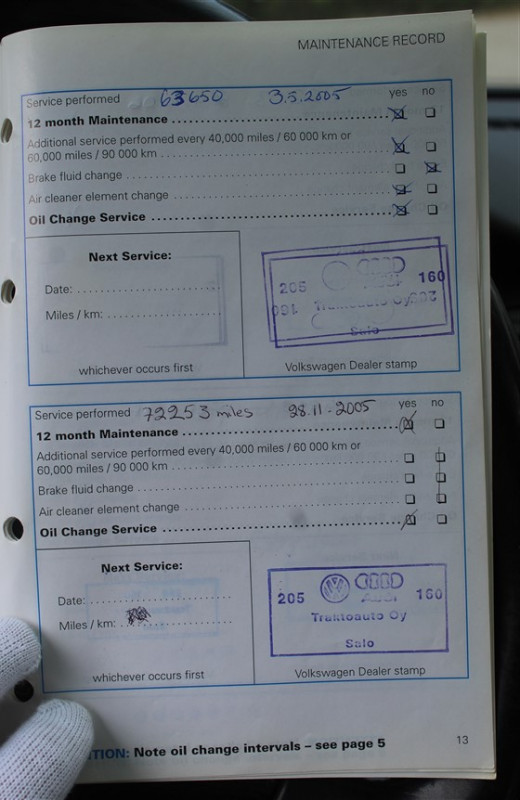 MAINTENANCE RECORD
Service performed 63650 3.5.2005 yes no
12 month Maintenance
Additional service performed every 40,000 miles / 60 000 km or
60,000 miles / 90 000 km
Brake fluid change
Air cleaner element change
Oil Change Service
Next Service:
Date:
Miles / km:
whichever occurs first
205 160
Traktoauto Oy
Salo
Volkswagen Dealer stamp
Service performed 72253 miles 28.11-2005 yes no
12 month Maintenance
Additional service performed every 40,000 miles / 60 000 km or
60,000 miles / 90 000 km
Brake fluid change
Air cleaner element change
Oil Change Service
Next Service:
Date:
Miles / km:
whichever occurs first
Audi
205 160
Traktoauto Oy
Salo
Volkswagen Dealer stamp
TION: Note oil change intervals – see page 5
13